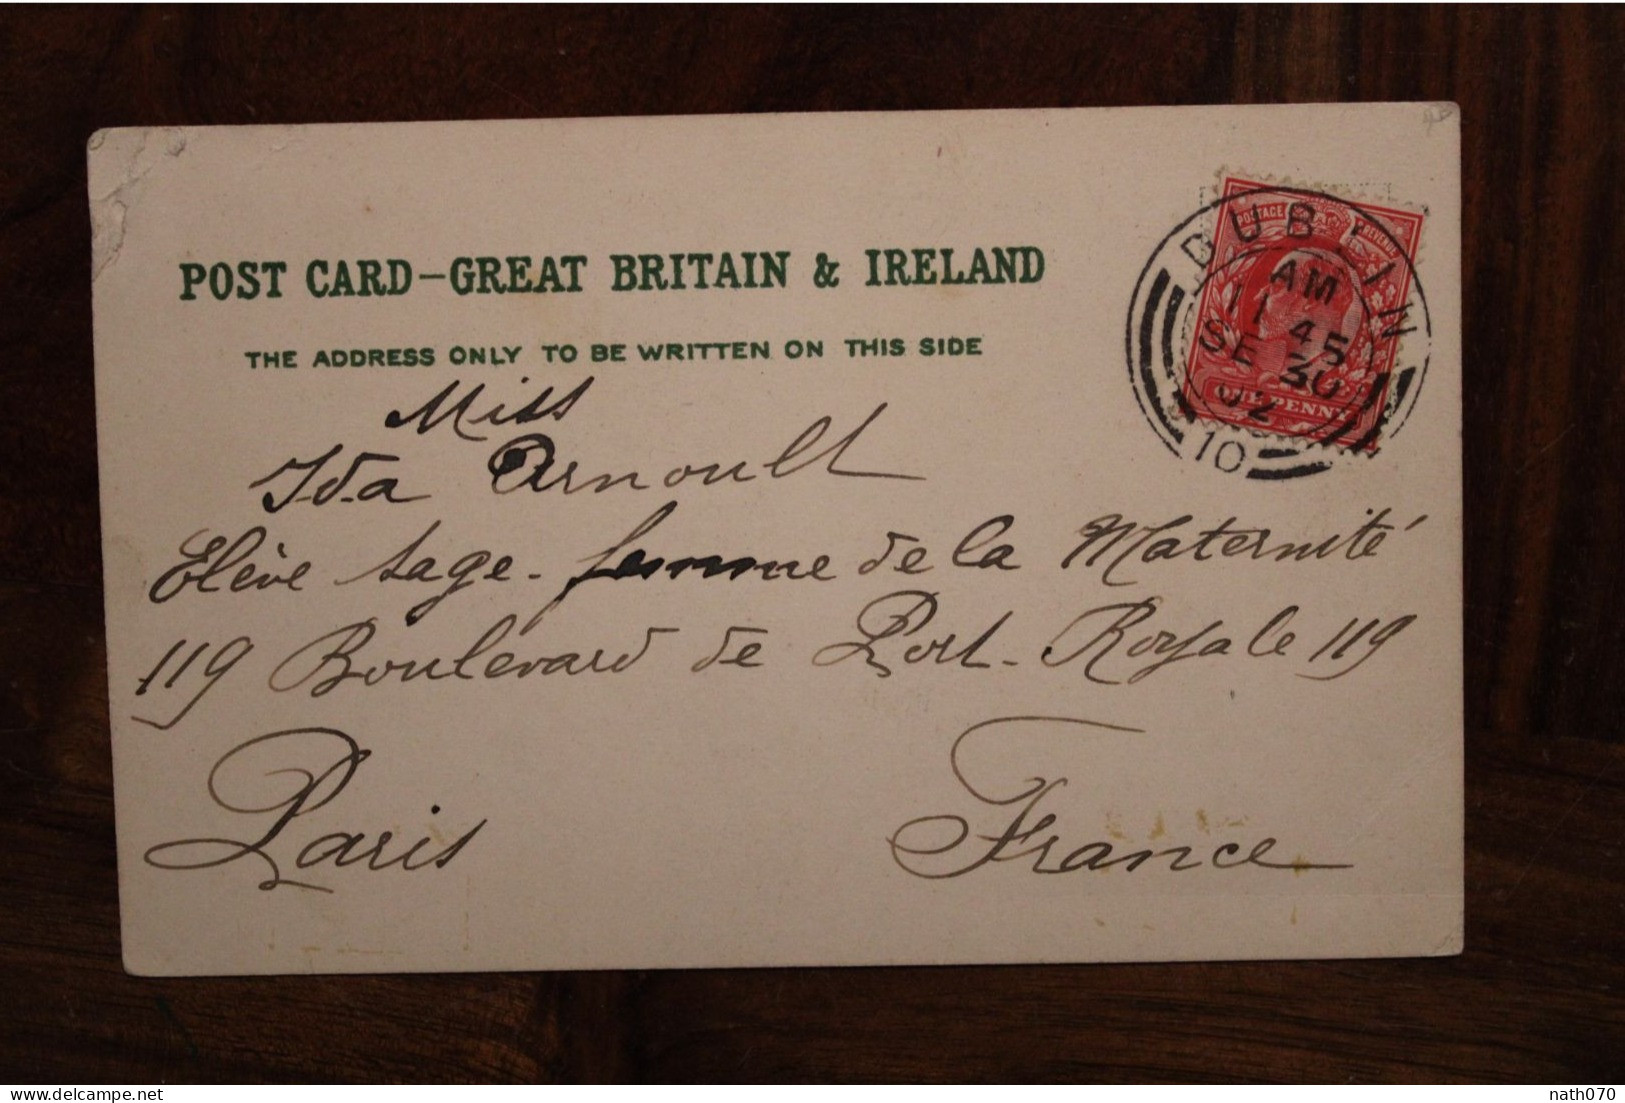 POST CARD—GREAT BRITAIN & IRELAND
THE ADDRESS ONLY TO BE WRITTEN ON THIS SIDE
POSTAGE REVENUE
ONE PENNY
DUBLIN
AM
11 45
SE 30
02
10
Miss
Ida Arnoult
Elève sage-femme de la Maternité
119 Boulevard de Port-Royale 119
Paris France
nath070
delcampe.net